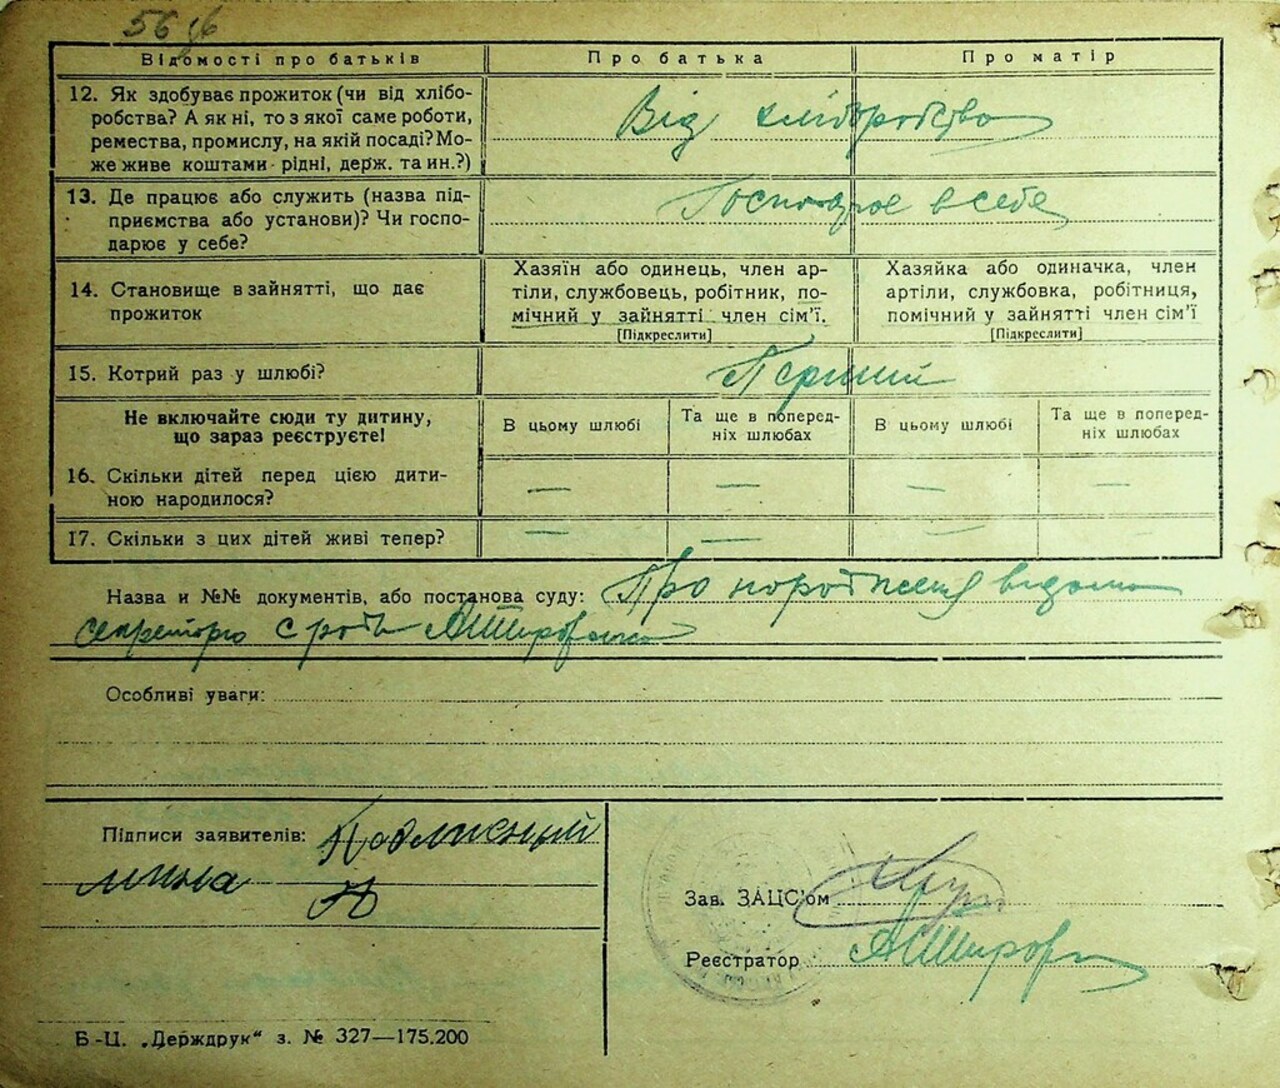 56
Відомості про батьків Про батька Про матір
12. Як здобуває прожиток (чи від хлібо-
робства? А як ні, то з якої саме роботи,
ремества, промислу, на якій посаді? Мо-
же живе коштами рідні, держ. та ин.?)
Від хліборобства
13. Де працює або служить (назва під-
приємства або установи)? Чи госпо-
дарює у себе?
Господарює в себе
14. Становище в зайнятті, що дає
прожиток
Хазяїн або одинець, член ар-
тіли, службовець, робітник, по-
мічний у зайнятті член сім'ї.
[Підкреслити]
Хазяйка або одиначка, член
артіли, службовка, робітниця,
помічний у зайнятті член сім'ї
[Підкреслити]
15. Котрий раз у шлюбі? Перший
Не включайте сюди ту дитину,
що зараз реєструєте!
В цьому шлюбі
Та ще в поперед-
ніх шлюбах
В цьому шлюбі
Та ще в поперед-
ніх шлюбах
16. Скільки дітей перед цією дити-
ною народилося?
— — — —
17. Скільки з цих дітей живі тепер?
— — — —
Назва и №№ документів, або постанова суду: Про народження відомо
секретарю с ради
Особливі уваги:
Підписи заявителів:
Зав. ЗАЦС'ом
Реєстратор
Б-Ц. „Держдрук“ з. № 327—175.200